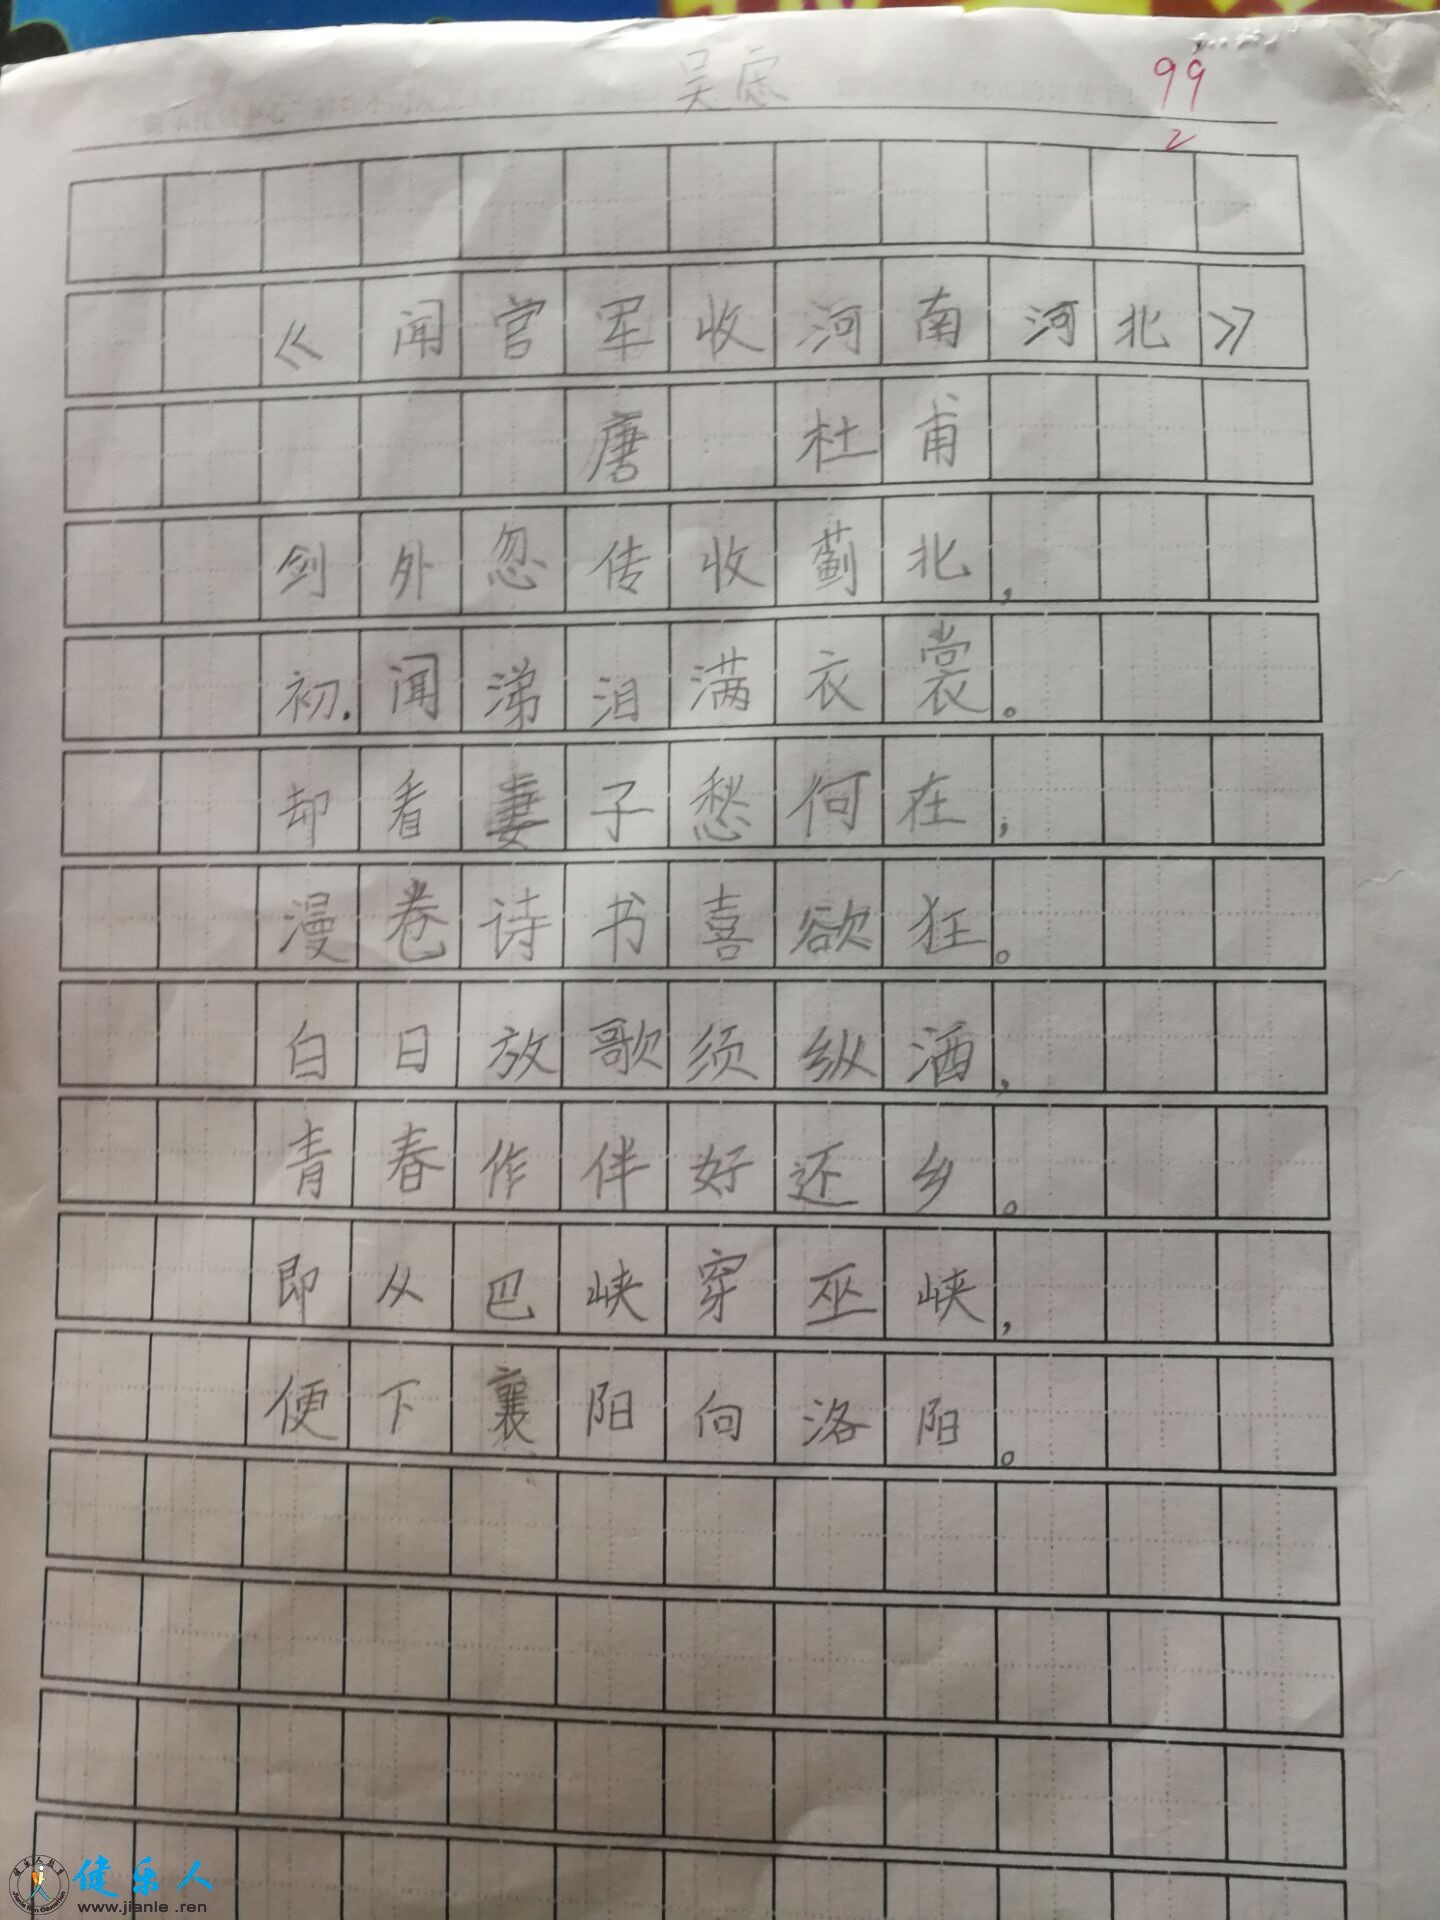 吴
99
2
《闻官军收河南河北》
唐 杜甫
剑外忽传收蓟北，
初.闻涕泪满衣裳。
却看妻子愁何在，
漫卷诗书喜欲狂。
白日放歌须纵酒，
青春作伴好还乡。
即从巴峡穿巫峡，
便下襄阳向洛阳。
健乐人
www.jianle.ren